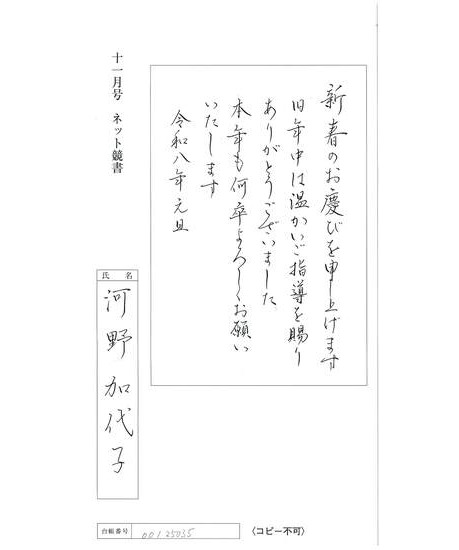 新春のお慶びを申し上げます
旧年中は温かいご指導を賜り
ありがとうございました
本年も何卒よろしくお願い
いたします
令和八年元旦
十一月号 ネット競書
氏名
河野加代子
台帳番号 00125035
〈コピー不可〉